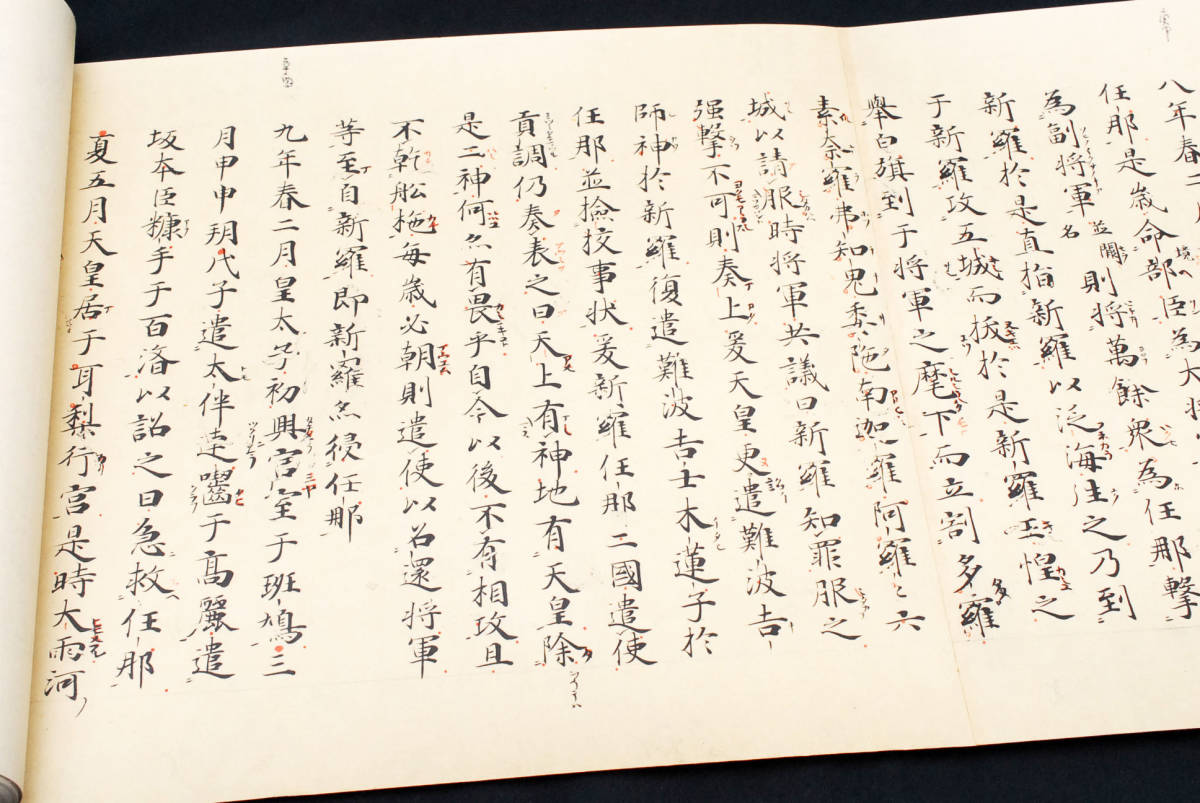 八年春二月
任那是歳命部臣為大将
為副将軍 並闕名 則将萬餘衆為任那撃
新羅於是直指新羅以泛海往之乃到
于新羅攻五城而拔於是新羅王惶之
舉白旗到于将軍之麾下而立割多羅
素奈羅弗知鬼委陁南迦羅阿羅々六
城以請服時将軍共議曰新羅知罪服之
强撃不可則奏上爰天皇更遣難波吉
師神於新羅復遣難波吉士木蓮子於
任那並撿挍事状爰新羅任那二國遣使
貢調仍奏表之曰天上有神地有天皇除
是二神何亦有畏乎自今以後不有相攻且
不乾舩柂毎歳必朝則遣使以召還将軍
等至自新羅即新羅亦侵任那
九年春二月皇太子初興宮室于班鳩三
月甲申朔戊子遣大伴連囓于髙麗遣
坂本臣糠手于百済以詔之曰急救任那
夏五月天皇居于耳梨行宮是時大雨河